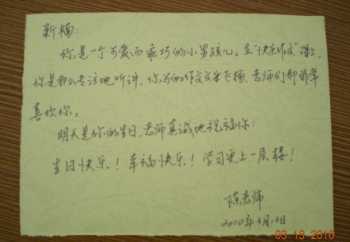 新楠：
你是一个可爱而乖巧的小男孩儿。在“快乐作文”课上，
你是那么专注地听讲，你的作文文采飞扬，老师们都非常
喜欢你。
明天是你的生日，老师真诚地祝福你：
生日快乐！幸福快乐！学习更上一层楼！
陈老师
2010年3月12日